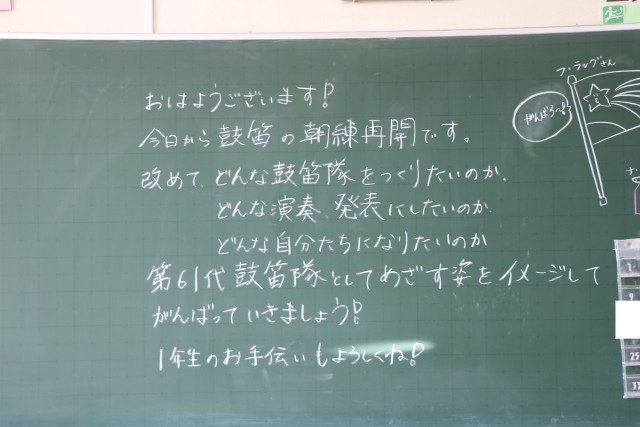 おはようございます!
今日から鼓笛の朝練再開です。
改めて、どんな鼓笛隊をつくりたいのか、
どんな演奏、発表にしたいのか
どんな自分たちになりたいのか
第61代鼓笛隊としてめざす姿をイメージして
がんばっていきましょう!
1年生のお手伝いもよろしくね!
フラッグさん
がんばろっ!
1
9
25
33